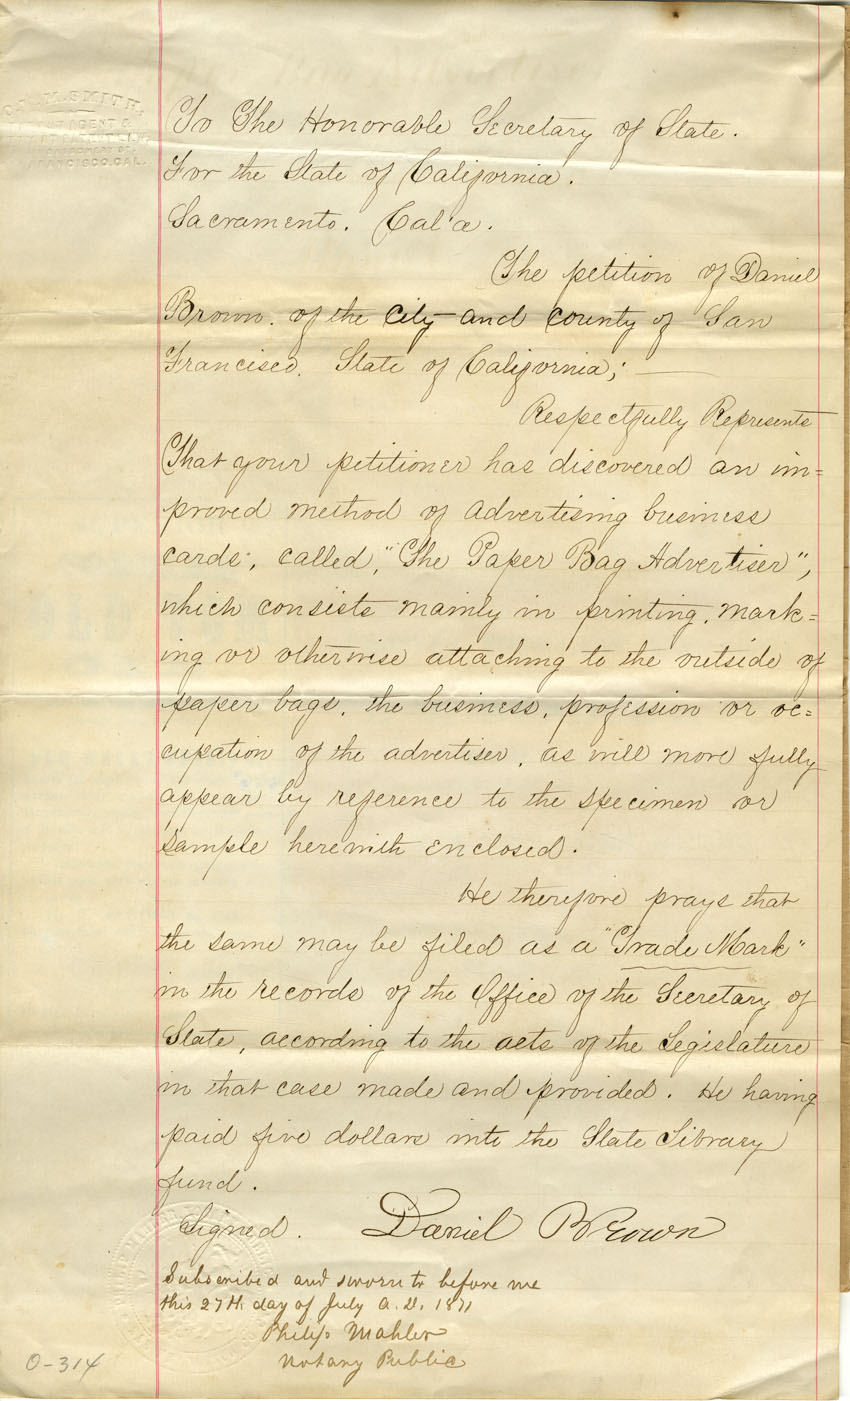 M. SMITH,
AGENT &
FRANCISCO, CAL.
To The Honorable Secretary of State.
For the State of California.
Sacramento. Cal'a.
The petition of Daniel
Brown. of the city and county of San
Francisco. State of California;
Respectfully Represents
That your petitioner has discovered an im=
proved method of advertising business
cards, called, "The Paper Bag Advertiser",
which consists mainly in printing, mark=
ing or otherwise attaching to the outside of
paper bags, the business, profession or oc=
cupation of the advertiser, as will more fully
appear by reference to the specimen or
sample herewith enclosed.
He therefore prays that
the same may be filed as a "Trade Mark"
in the records of the Office of the Secretary of
State, according to the acts of the Legislature
in that case made and provided. He having
paid five dollars into the State Library
fund.
Signed. Daniel Brown
Subscribed and sworn to before me
this 27th day of July A.D. 1871
Philip Mahler
Notary Public
0-314